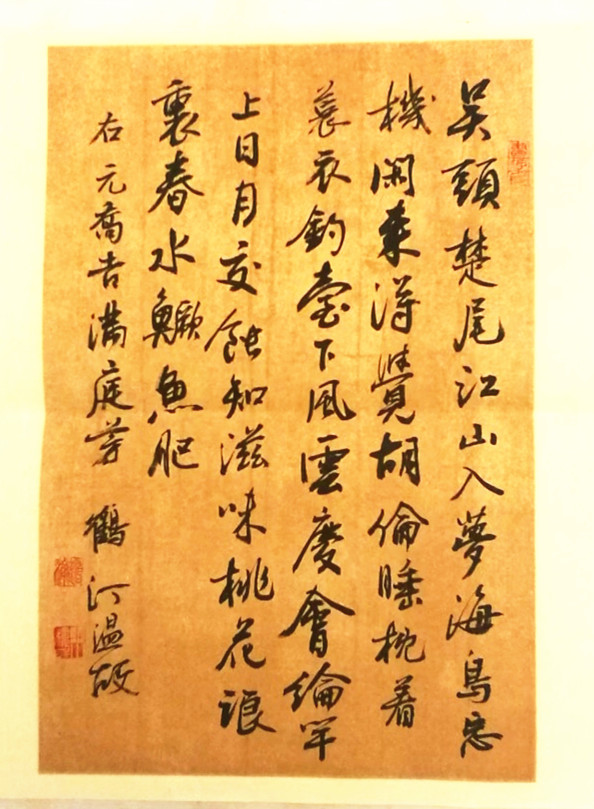 吴頭楚尾江山入夢海鳥忘
機閑来得覺胡倫睡枕着
蓑衣釣臺下風雲慶會綸竿
上日月交蝕知滋味桃花浪
裏春水鱖魚肥
右元喬吉滿庭芳 鶴汀温故